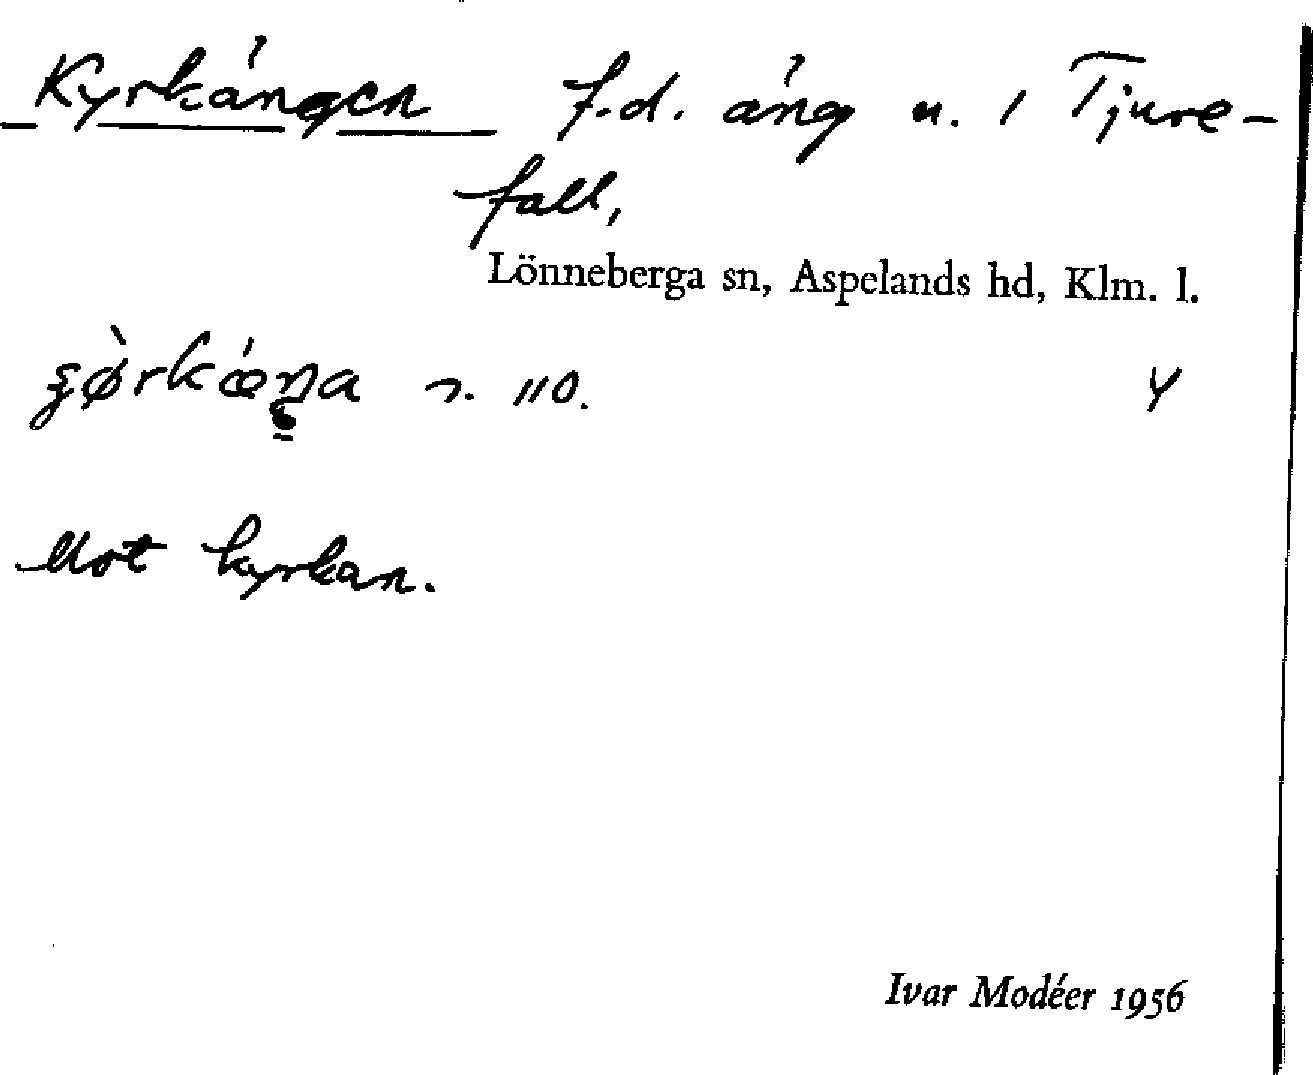 Kyrkängen f.d. äng u. 1 Tjure-
fall,
Lönneberga sn, Aspelands hd, Klm. l.
110. Y
Mot kyrkan.
Ivar Modéer 1956